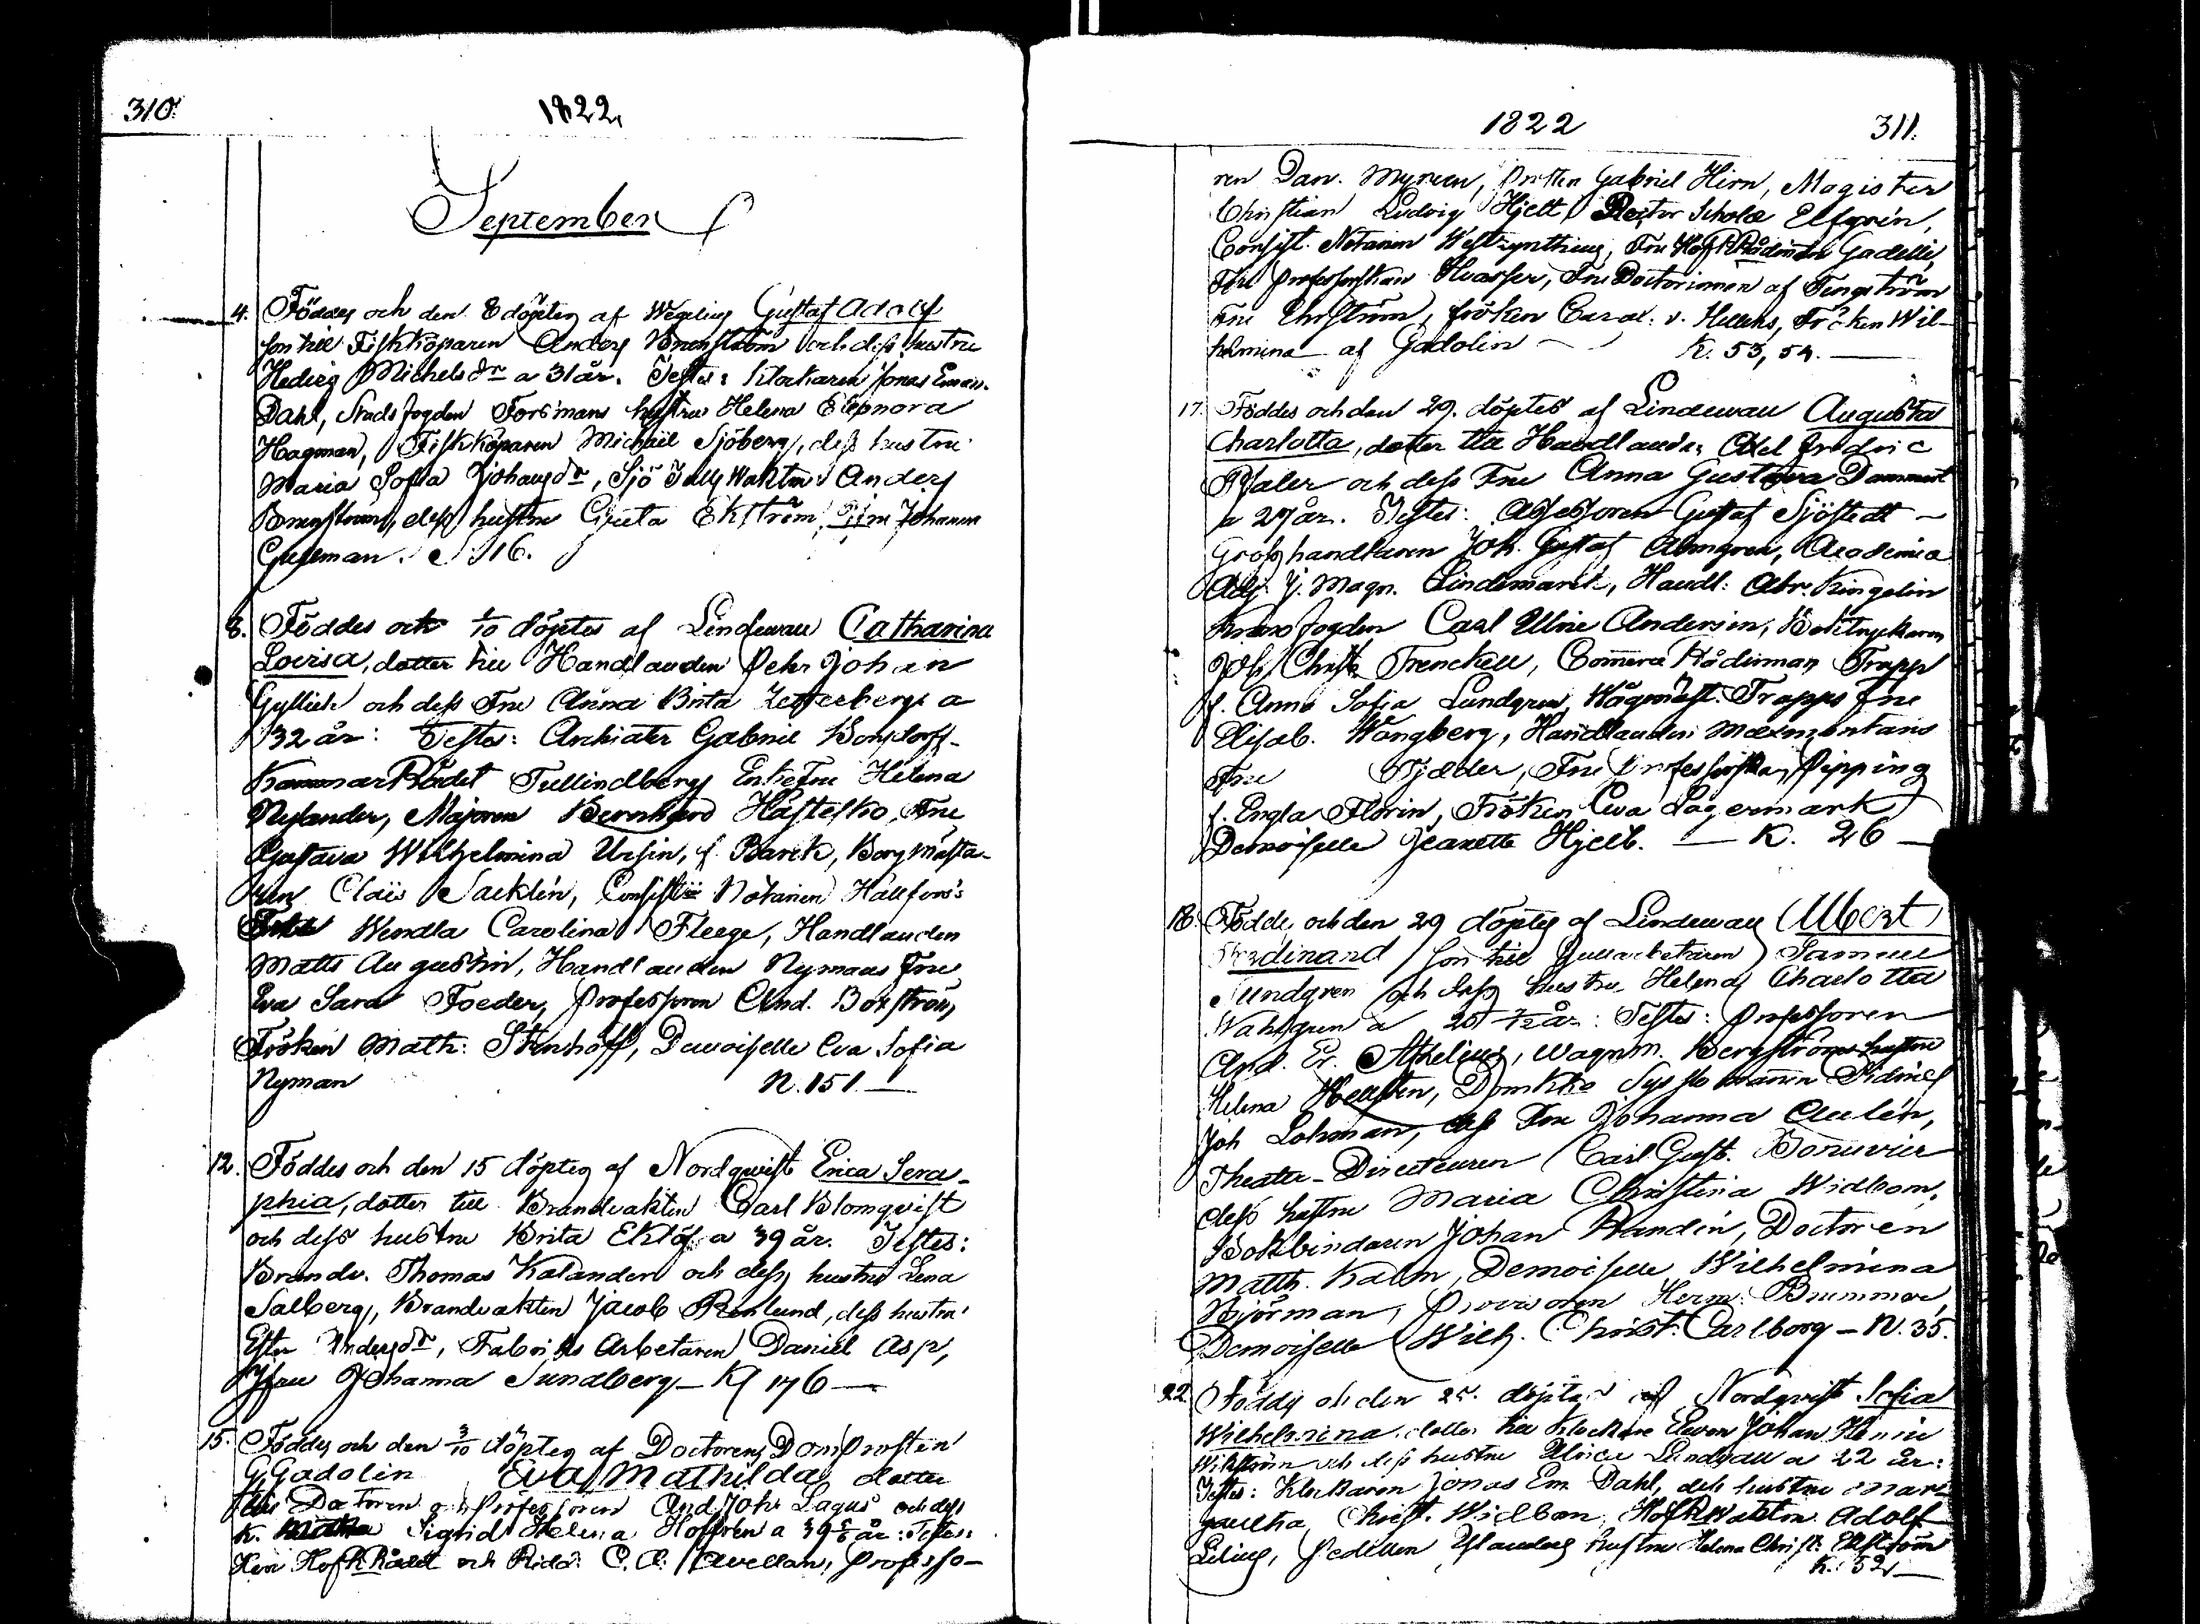 310.
1822.
September
4. Föddes och den 8 döptes af Wegelius Gustaf Adolf
son till Fiskköparen Anders Brenström och dess hustru
Hedvig Michelsdr a 31 år. Testes: Klockaren Jonas Eman.
Dahl, Stadsfogden Forsmans hustru Helena Eleonora
Hagman, Fiskköparen Michael Sjöberg, dess hustru
Maria Sofia Johansdr, Sjö Tull Waktm: Anders
dess hustru Greta Ekström, Johanna
16.
8. Föddes och 1/10 döptes af Lindewall Catharina
Lovisa, dotter till Handlanden Pehr Johan
Gyllich och dess Fru Anna Brita Zetterberg a
32 år: Testes: Archiater Gabriel Bonsdorff
KammarRådet Tullindbergs EnkeFru Helena
Nylander, Majoren Bernhard Hästesko, Fru
Gustava Wilhelmina Ursin, f. Barck, Borgmästa-
ren Claës Sacklén, Notarien Hällfors's
Wendla Carolina Fleege, Handlanden
Matts Augustin, Handlanden Nymans Fru
Eva Sara Foeder, Professoren And. Boxström,
Fröken Math: Stenhoff, Demoiselle Eva Sofia
Nyman N. 151 —
12. Föddes och den 15 döptes af Nordqwist Erica Sera-
phia, dotter till Brandvakten Carl Blomqvist
och dess hustru Brita Eklöf a 39 år. Testes:
Brandv. Thomas Kalander och dess hustru Lena
Salberg, Brandvakten Jacob Renlund, dess hustru
Ester Andersdr, Fabriks Arbetaren Daniel Asp,
Jfru Johanna Sundberg — K 176 —
15. Föddes och den 3/10 döptes af Doctoren Domprosten
G. Gadolin Eva Mathilda dotter
till Doctoren och Professoren And. Joh. Lagus och dess
K. Sigrid Helena Hoffrén a 39 år: Testes:
Herr HofRRådet och Ridd: C. A. Avellan, Professo-
1822
311.
ren Dan. Myreen, Prosten Gabriel Hirn, Magister
Christian Ludvig Hjelt, Rector Scholæ Elfgrén,
Consist. Notarien Westzynthius, Fru HofRRådinnan Gadelli,
Fru Professorskan Hwasser, Fru Doctorinnan af Tengström
Fru Ehrström, fröken Carol: v. Hellens, Fröken Wil-
helmina af Gadolin — K. 53, 54. —
17. Föddes och den 29. döptes af Lindewall Augusta
Charlotta, dotter till Handlanden Axel Fredric
Byaler och dess Fru Anna Gustava Dammert
a 27 år. Testes: Assessoren Gustaf Sjöstedt —
Grosshandlaren Joh. Gustaf Almgren, Academiæ
Adj: J. Magn. Lindemarck, Handl: Abr. Kingelin
Kronofogden Carl Ulric Andersin, Boktryckaren
Joh. Christ. Frenckell, Commerce Rådinnan Trapp
f. Anna Sofia Lundgren, Wågmäst. Trapps Fru
Elisab. Wångberg, Handlanden Maexmontans
Fru Kjælder, Fru Professorskan Pipping
f. Engla Florin, Fröken Eva Lagermark
Demoiselle Jeanette Hjelt. — K. 26 —
18. Föddes och den 29 döptes af Lindewall Albert
Ferdinand son till Gullarbetaren Samuel
Lundgren och dess hustru Helena Charlotta
Wahlgren a 20 1/2 år: Testes: Professoren
And. Er. Afzelius, Wagnm. Bergströms hustru
Helena Hellsten, Domkko Sysslomannen Fidric
Joh Lohman, dess Fru Johanna Aulén,
Theater-Directeuren Carl Gust. Bonuvier
dess hustru Maria Christina Widbom,
Bokbindaren Johan Randén, Doctoren
Matth. Kalm, Demoiselle Wilhelmina
Björman, Provisoren Herm: Brummer
Demoiselle Wilh. Christ: Carlborg — N. 35.
22. Föddes och den 25. döptes af Nordqvist Sofia
Wilhelmina dotter till Klockare Eleven Johan Henric
Wikström och dess hustru Ulrica Lindvall a 22 år:
Testes: Klockaren Jonas Em. Dahl, dess hustru Mar-
garetha Christ. Widbom, HofRWaktm. Adolf
Lilius, Pedellen hustru Helena Christ: Ekström
K. 52 —